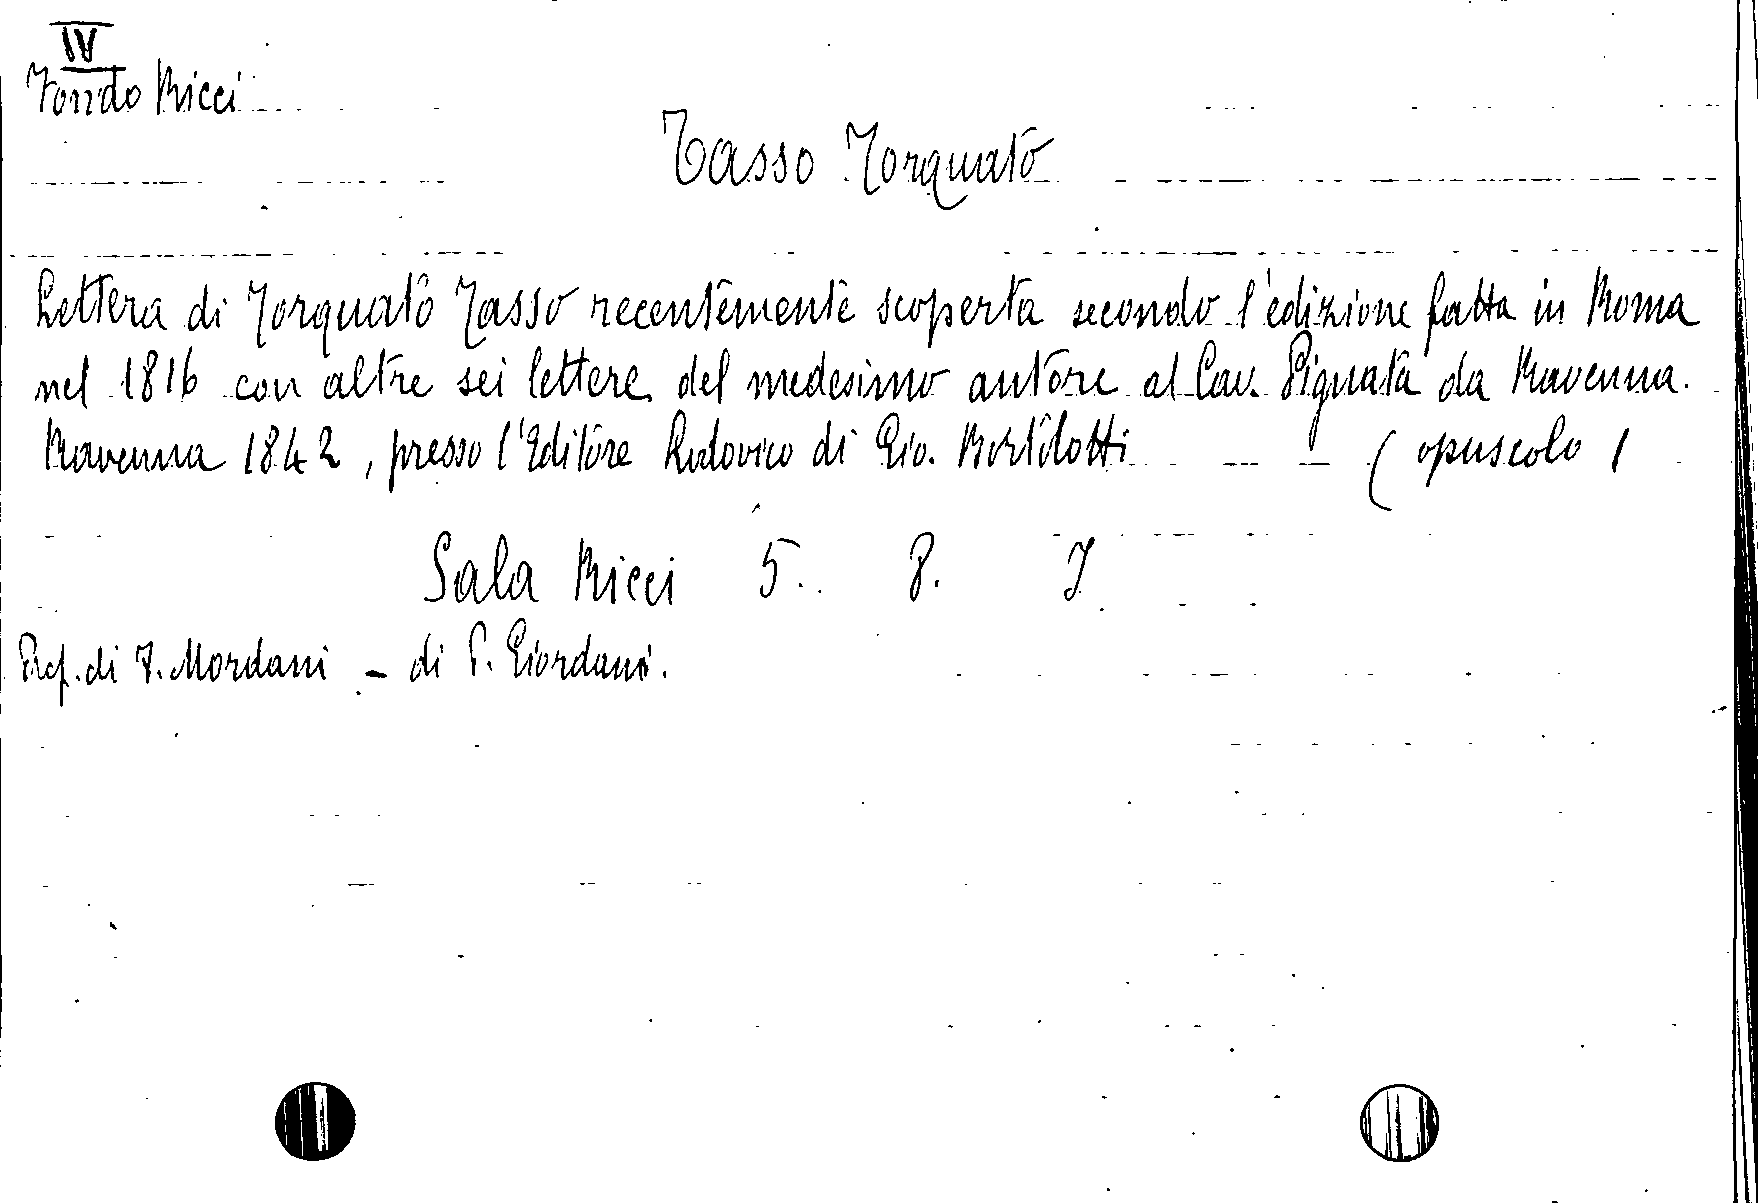 IV
Fondo Ricci
Tasso Torquato
Lettera di Torquato Tasso recentemente scoperta secondo l'edizione fatta in Roma
nel 1816 con altre sei lettere del medesimo autore al Cav. Pignata da Ravenna.
Ravenna 1842, presso l'Editore Lodovico di Gio. Bortolotti (opuscolo)
Sala Ricci 5. 8. 7
Pref. di F. Mordani - di P. Giordani.